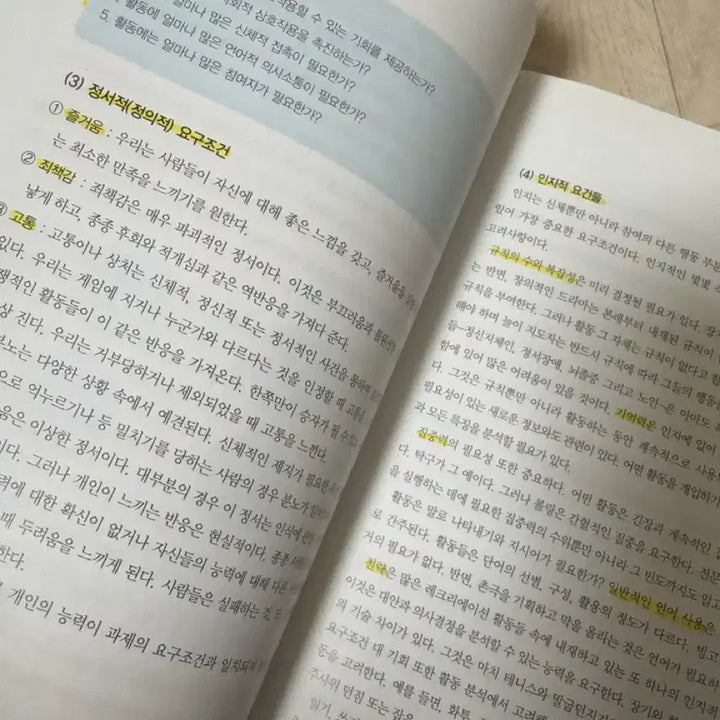 용할 수 있는 기회를 제공하는가?
회적 상호작용을 촉진하는가?
활동에 얼마나 많은 신체적 접촉이 필요한가?
5. 활동에는 얼마나 많은 언어적 의사소통이 필요한가?
얼마나 많은 참여자가 필요한가?
(3) 정서적(정의적) 요구조건
① 즐거움 : 우리는 사람들이 자신에 대해 좋은 느낌을 갖고, 즐거움을
는 최소한 만족을 느끼기를 원한다.
② 죄책감 : 죄책감은 매우 파괴적인 정서이다. 이것은 부끄러움과
낳게 하고, 종종 후회와 적개심과 같은 역반응을 가져다 준다.
③ 고통 : 고통이나 상처는 신체적, 정신적 또는 정서적인 사건을 통하여
있다. 우리는 게임에 지거나 누군가와 다르다는 것을 인정할 때 고통을
쟁적인 활동들이 이 같은 반응을 가져온다. 한쪽만이 승자가 될 수
상 진다. 우리는 거부당하거나 제외되었을 때 고통을 느낀다.
분노는 다양한 상황 속에서 예견된다. 신체적인 제지가 필요한
으로 억누르기나 등 밀치기를 당하는 사람의 경우 분노가
움은 이상한 정서이다. 대부분의 경우 이 정서는 인식에
이다. 그러나 개인이 느끼는 반응은 현실적이다. 종종
력에 대한 확신이 없거나 자신들의 능력에 대해
때 두려움을 느끼게 된다. 사람들은 실패하는 것
한다.
개인의 능력이 과제의 요구조건과
(4) 인지적 요건들
인지는 신체뿐만 아니라 참여의 다른 행동 부분
있어 가장 중요한 요구조건이다. 인지적인 몇몇
고려사항이다.
규칙의 수와 복잡성은 미리 결정될 필요가 있다.
는 반면, 창의적인 드라마는 본래부터 내재된 규칙이
규칙을 부여한다. 그러나 활동 그 자체는 규칙이 없다고
해야 하며 놀이 지도자는 반드시 규칙에 따라 그들의 행동을
들-정신지체인, 정서장애, 뇌졸중 그리고 노인-은 아마도
함에 있어 많은 어려움이 있을 것이다. 기억력은 인지에 있어
다. 그것은 규칙뿐만 아니라 활동하는 동안 계속적으로 사용
필요성이 있는 새로운 정보와도 관련이 있다. 어떤 활동을 개입하기
과 모든 특징을 분석할 필요가 있다.
집중력의 필요성 또한 중요하다. 어떤 활동은 긴장과 계속적인
다. 탁구가 그 예이다. 그러나 볼링은 간헐적인 집중을 요구한다.
을 실행하는 데에 필요한 집중력의 수위뿐만 아니라 그 빈도까지도
활동은 말로 나타내기와 지시어가 필요한가? 일반적인 언어 사용은
로 간주된다. 활동들은 단어의 선별, 구성, 활용의 정도가 다르다. 빙고
거의 필요가 없다. 반면, 촌극을 기획하고 막을 올리는 것은 언어가 필요하
전략은 많은 레크리에이션 활동들 속에 내재하고 있는 또 하나의 인지적
이것은 대안과 의사결정을 분석할 수 있는 능력을 요구한다. 장기와
의 기술 차이가 있다. 그것은 마치 테니스와 말굽던지기
요구조건 대 기회 또한 활동 분석에서 고려
동을 고려한다. 예를 들면, 화투
주사위 던짐 또는 잡은
읽기,